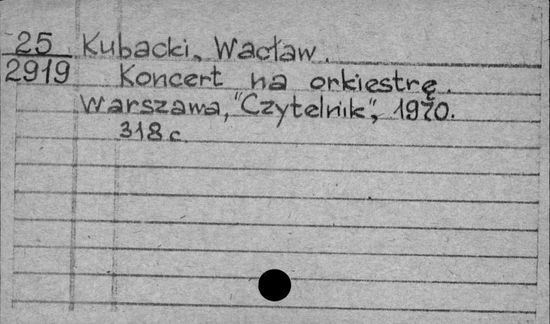 25 Kubacki, Wacław.
2919 Koncert na orkiestrę.
Warszawa, "Czytelnik", 1970.
318 c.